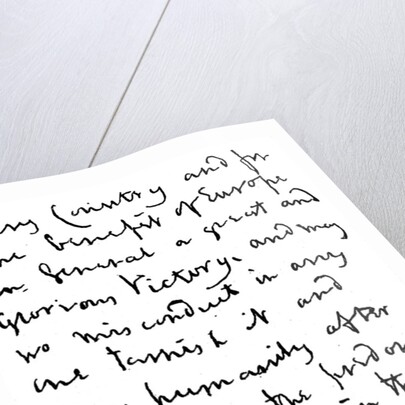 my Country and for
the benefit of Europe
in General a great and
Glorious Victory, and may
no misconduct in any
one tarnish it and
humanity after
the